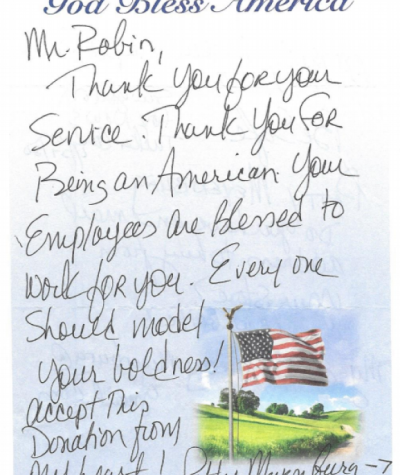 God Bless America
Mr. Robin,
Thank You for your
Service. Thank You For
Being an American. Your
Employees are Blessed to
work for you. Every one
Should model
your boldness!
accept This
Donation from
my heart!